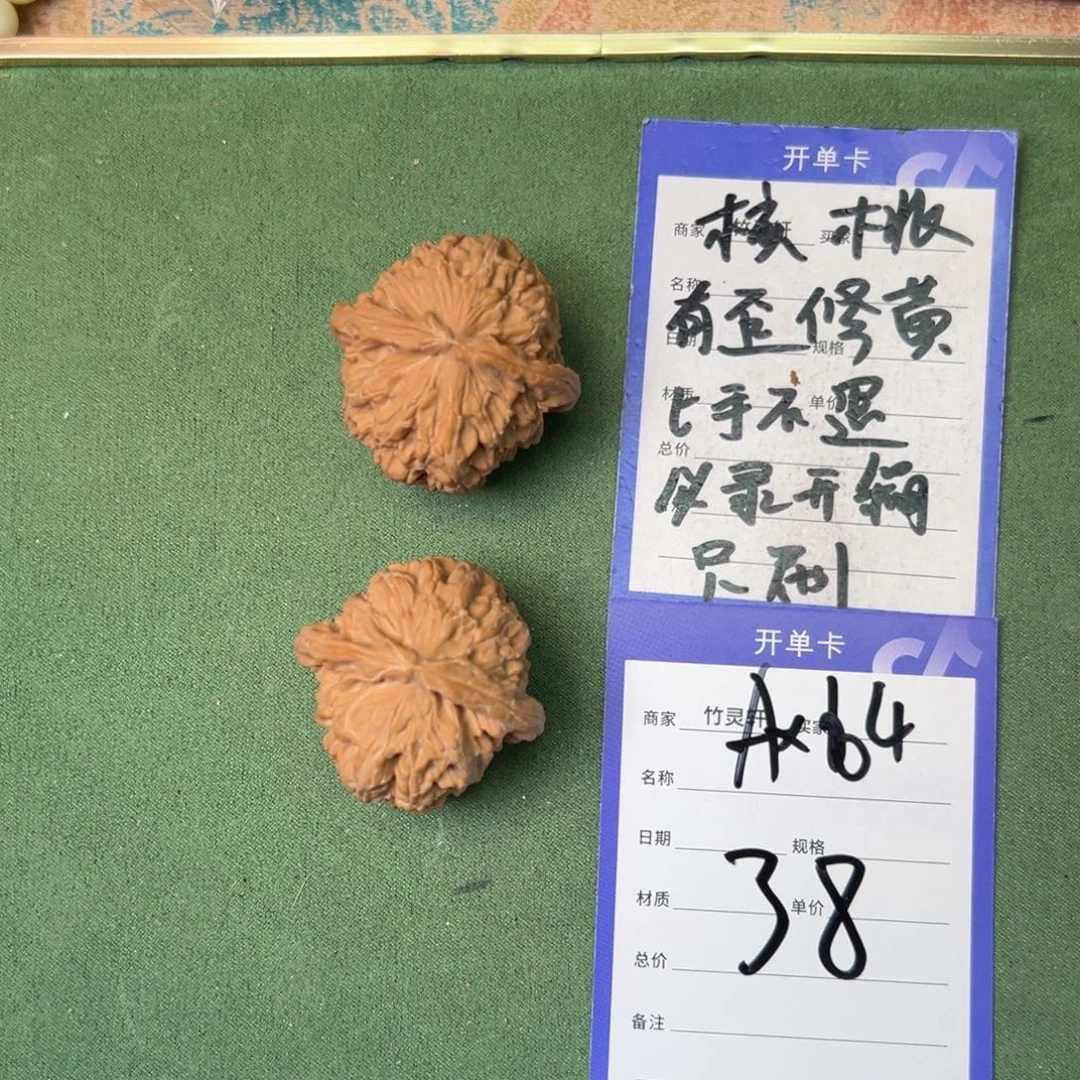 开单卡
商家 买家
核 桃
名称
有歪修黄
日期 规格
上手不退
材质 单价
总价
仅录开绳
尺刷
开单卡
商家 竹灵轩 买家
Ax64
名称
日期 规格
38
材质 单价
总价
备注